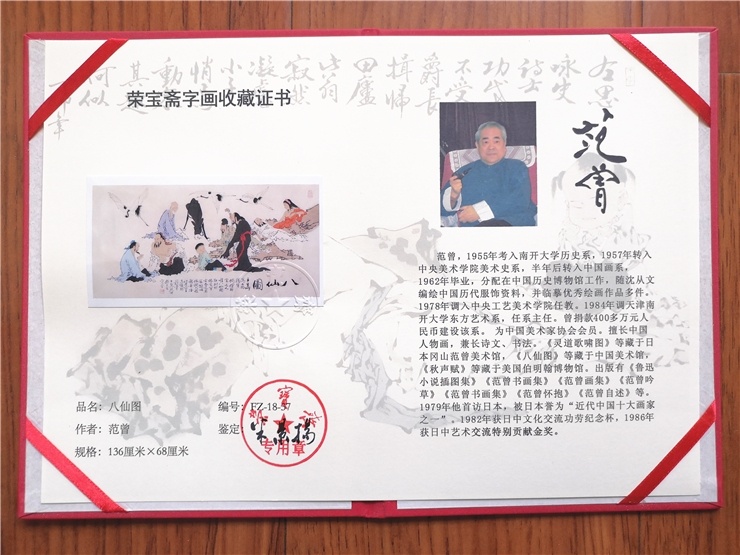 荣宝斋字画收藏证书
八仙图
品名：八仙图
编号：FZ-18-37
作者：范曾
鉴定：
规格：136厘米×68厘米
专用章
范曾
范曾，1955年考入南开大学历史系，1957年转入
中央美术学院美术史系，半年后转入中国画系，
1962年毕业，分配在中国历史博物馆工作，随沈从文
编绘中国历代服饰资料，并临摹优秀绘画作品多件。
1978年调入中央工艺美术学院任教。1984年调天津南
开大学东方艺术系，任系主任。曾捐款400多万元人
民币建设该系。 为中国美术家协会会员。擅长中国
人物画，兼长诗文、书法。《灵道歌啸图》等藏于日
本冈山范曾美术馆，《八仙图》等藏于中国美术馆，
《秋声赋》等藏于美国伯明翰博物馆。出版有《鲁迅
小说插图集》《范曾书画集》《范曾画集》《范曾吟
草》《范曾书画集》《范曾怀抱》《范曾自述》等。
1979年他首访日本，被日本誉为“近代中国十大画家
之一”。1982年获日中文化交流功劳纪念杯，1986年
获日中艺术交流特别贡献金奖。